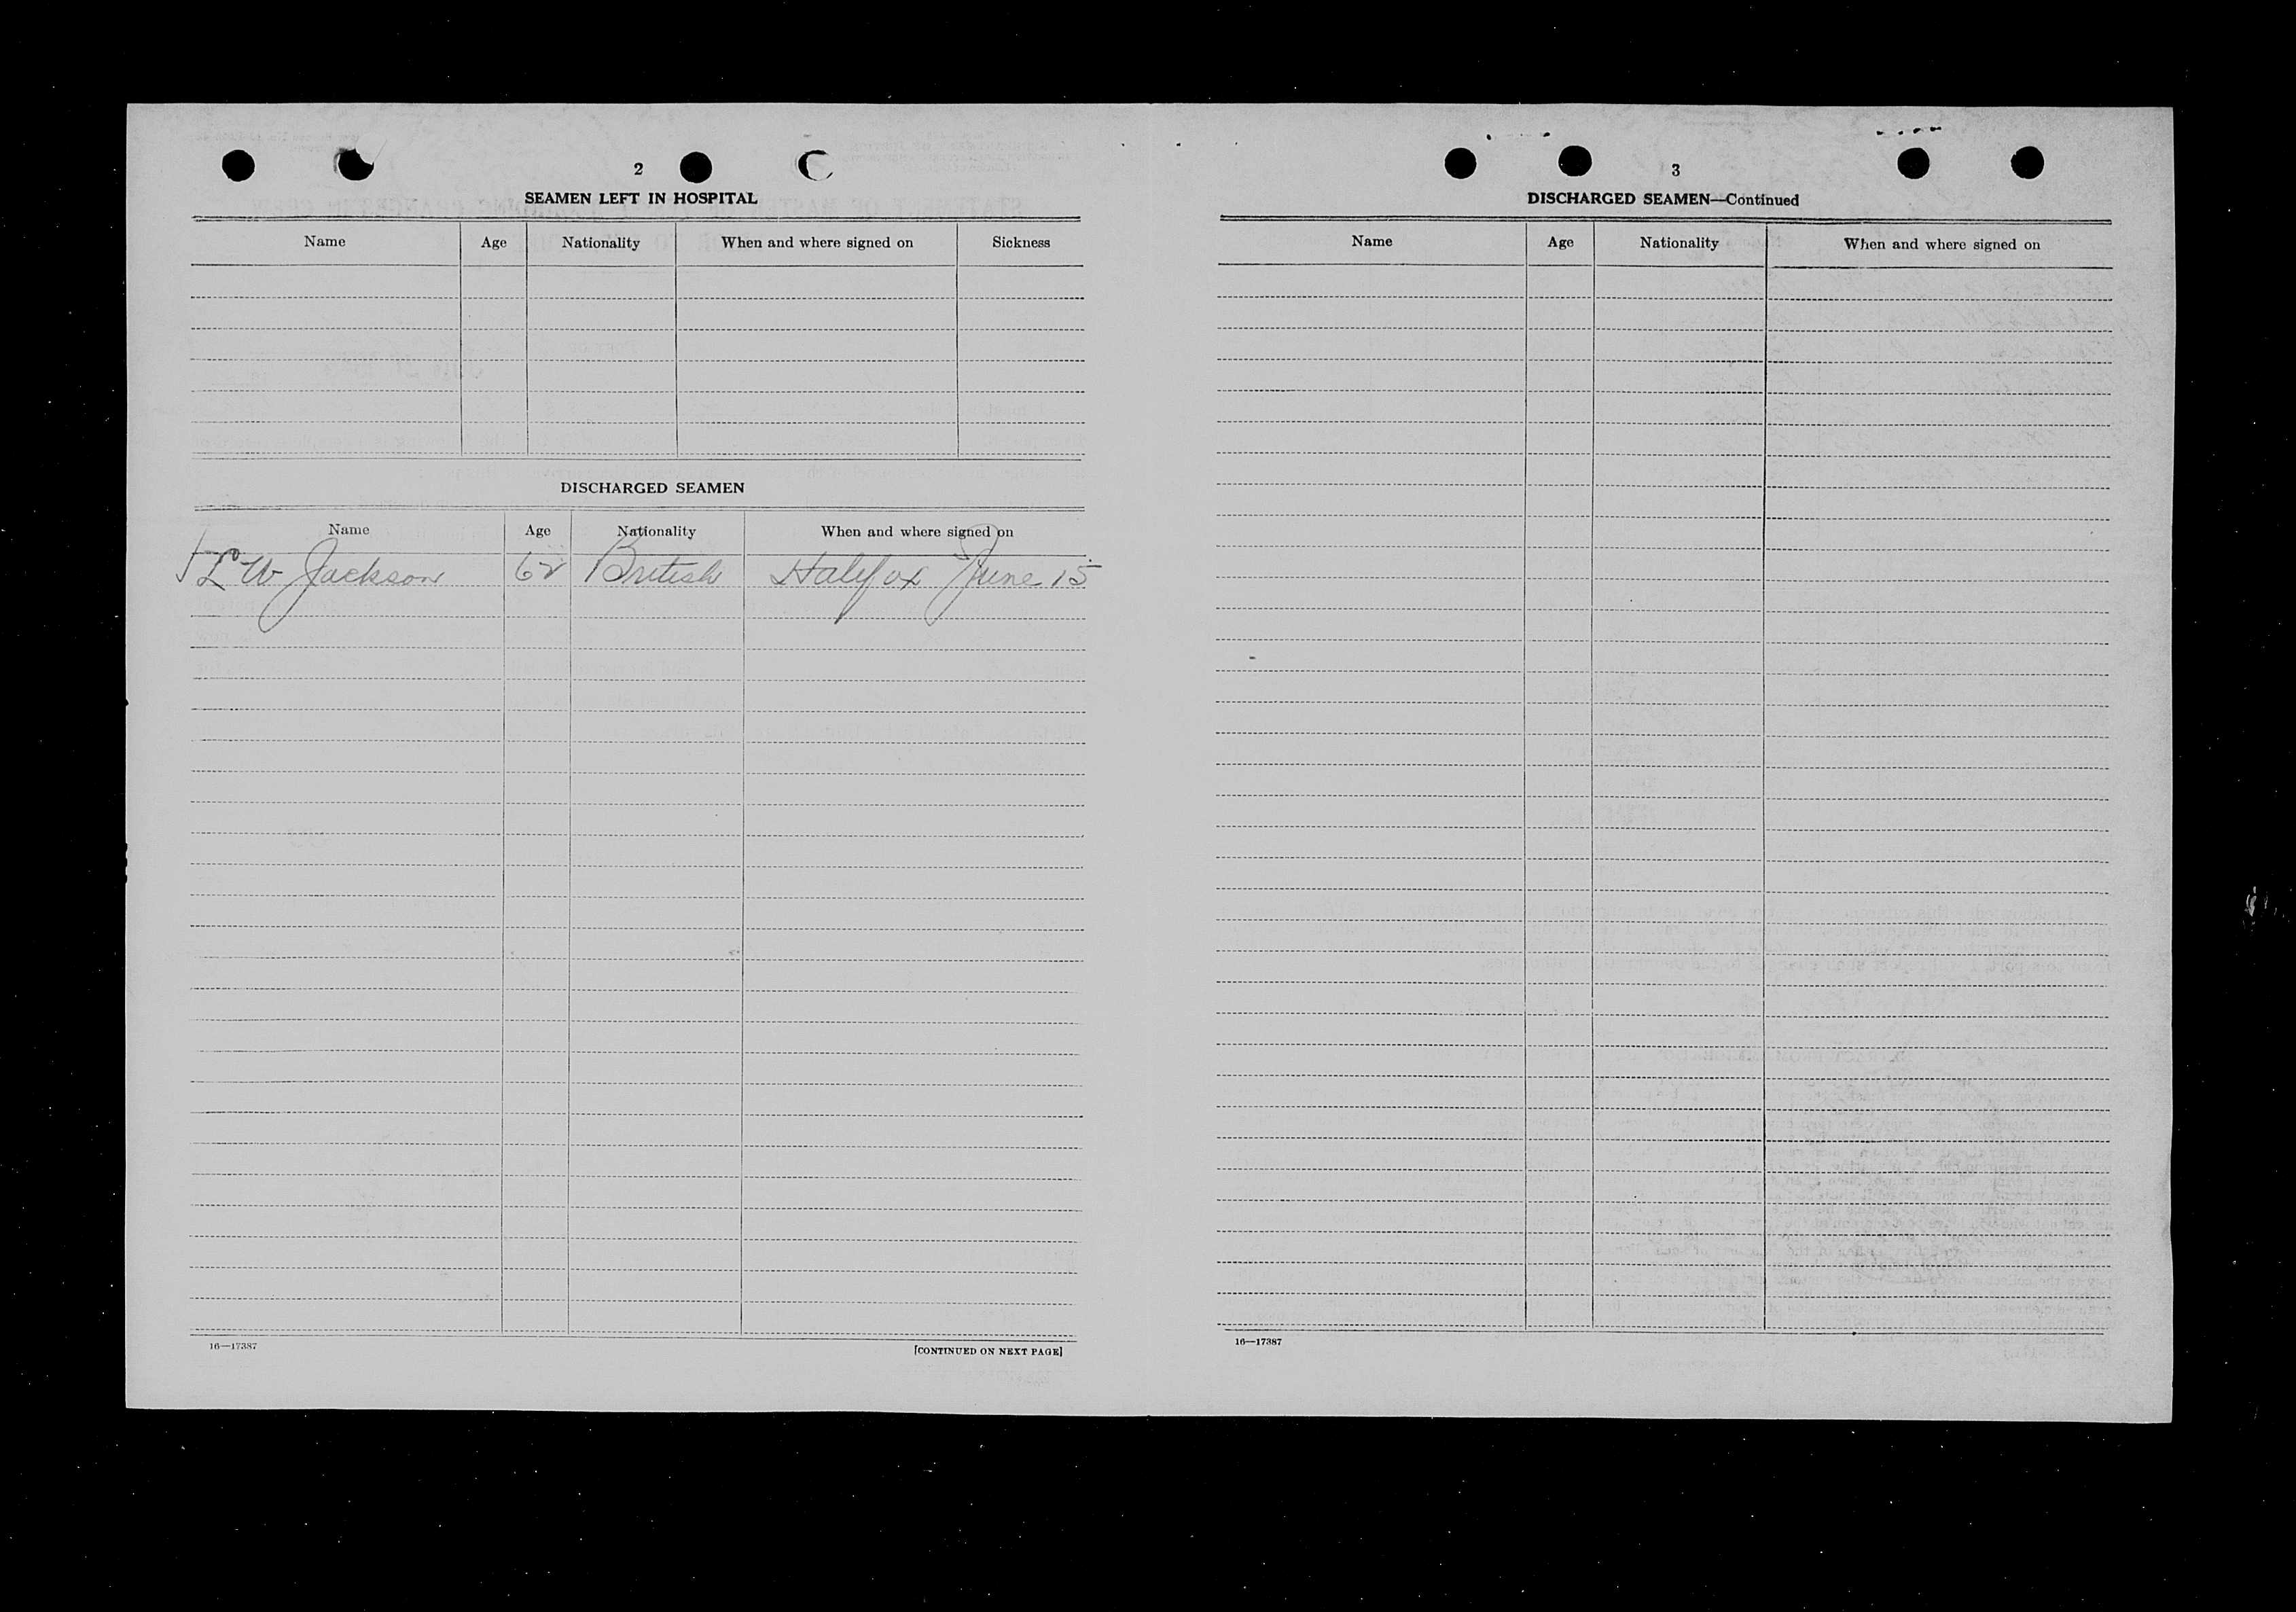 2
SEAMEN LEFT IN HOSPITAL
Name Age Nationality When and where signed on Sickness
DISCHARGED SEAMEN
Name Age Nationality When and where signed on
W Jackson 62 British Halifax June 15
16—17387
[CONTINUED ON NEXT PAGE]
3
DISCHARGED SEAMEN—Continued
Name Age Nationality When and where signed on
16—17387